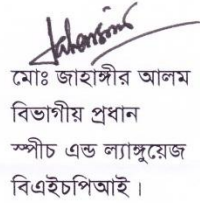 মোঃ জাহাঙ্গীর আলম
বিভাগীয় প্রধান
স্পীচ এন্ড ল্যাঙ্গুয়েজ
বিএইচপিআই।